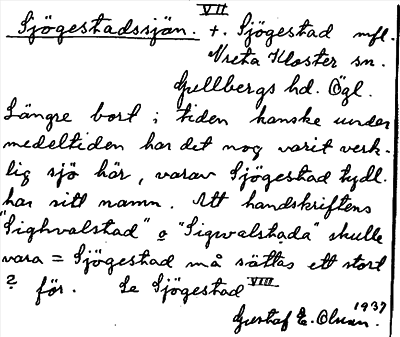 VII
Sjögestadssjön. t. Sjögestad mfl.
Vreta Kloster sn.
Gullbergs hd. Ögl.
Längre bort i tiden kanske under
medeltiden har det nog varit verk-
lig sjö här, varav Sjögestad tydl.
har sitt namn. Att handskriftens
"Sighvalstad" o "Sigwalstada" skulle
vara = Sjögestad må sättas ett stort
? för. Se Sjögestad VIII
1937
Gustaf E. Olsson.